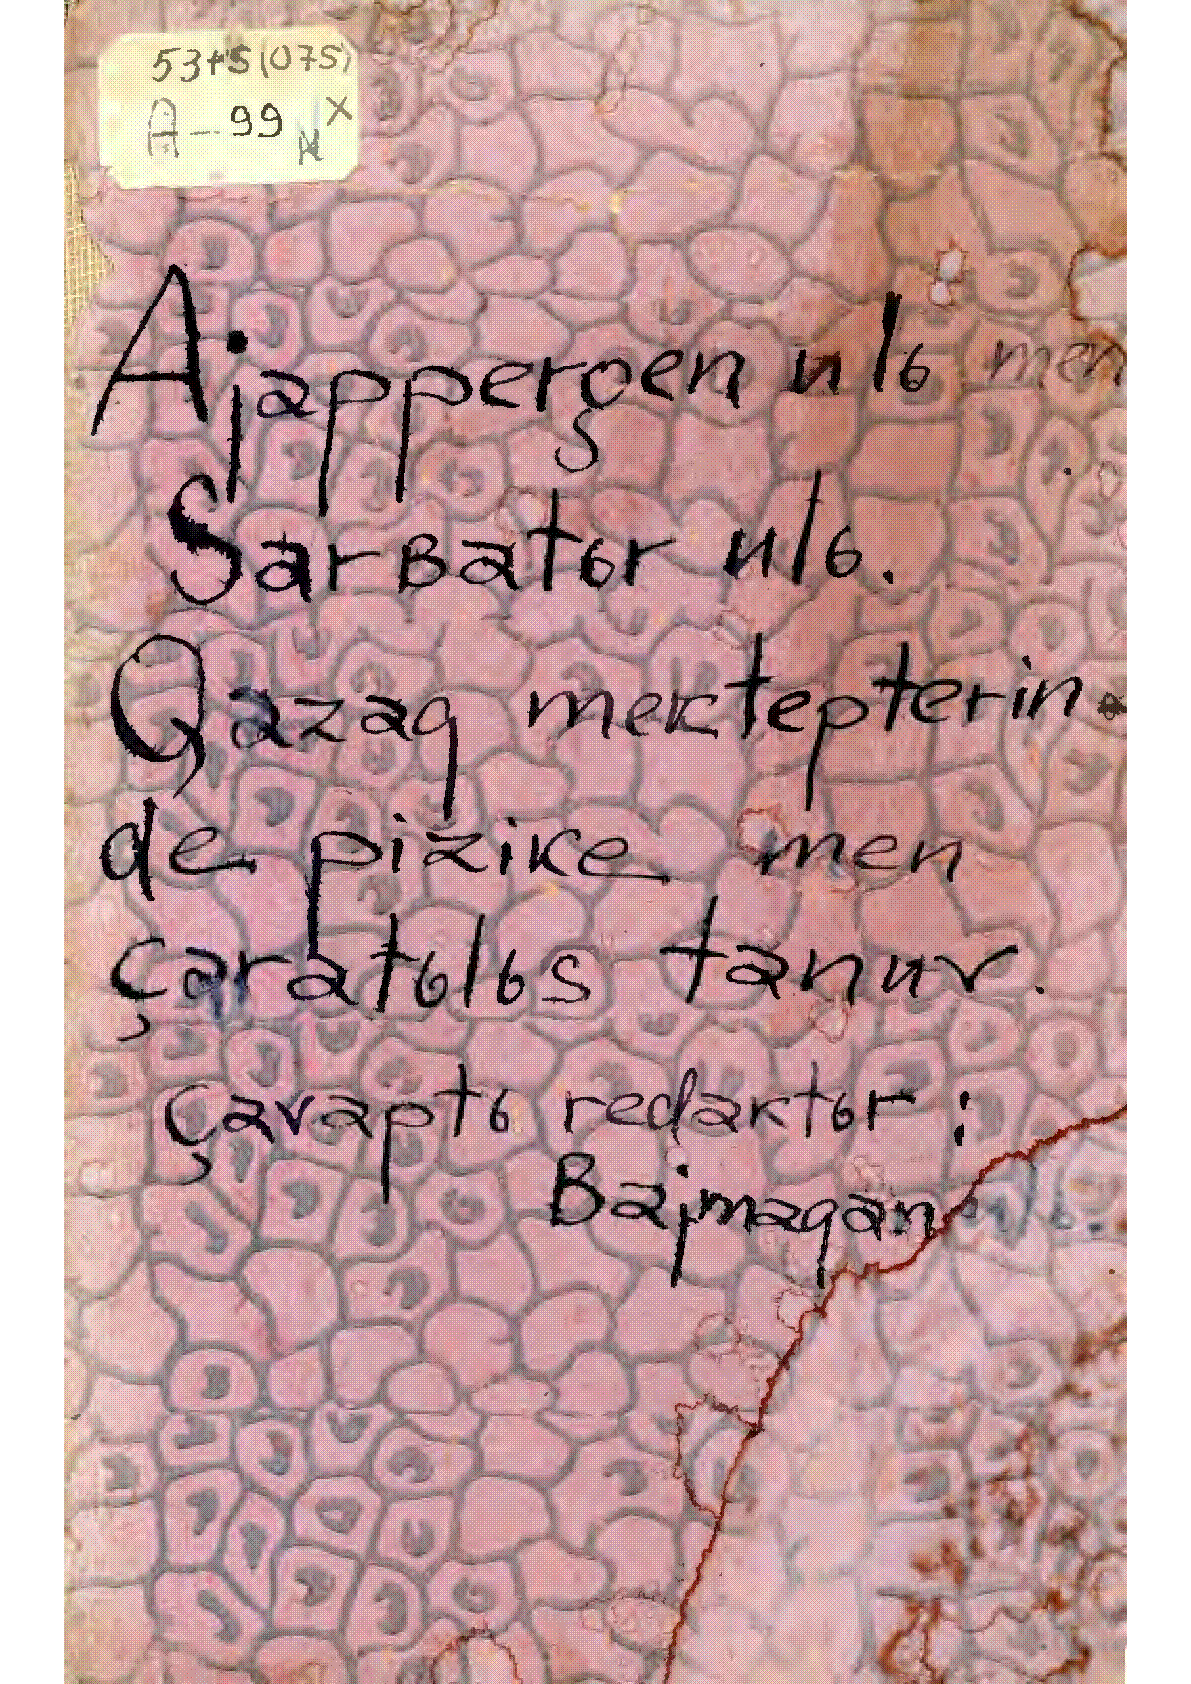 53+5(075)
A-99
Ajappergen ulь men
Sarʙatьr ulь.
Qazaq mektepterin-
de pizike men
çaratьlьs tanuv.
Çavaptь redaktьr:
Bajmaqan